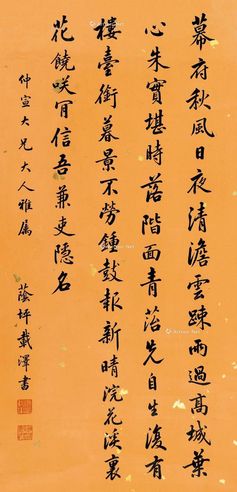 幕府秋風日夜清澹雲踈雨過高城葉
心朱實堪時落階面青苔先自生復有
樓臺銜暮景不勞鍾鼓報新晴浣花溪裏
花饒咲肎信吾兼吏隱名
仲宣大兄大人雅屬
蔭坪載澤書